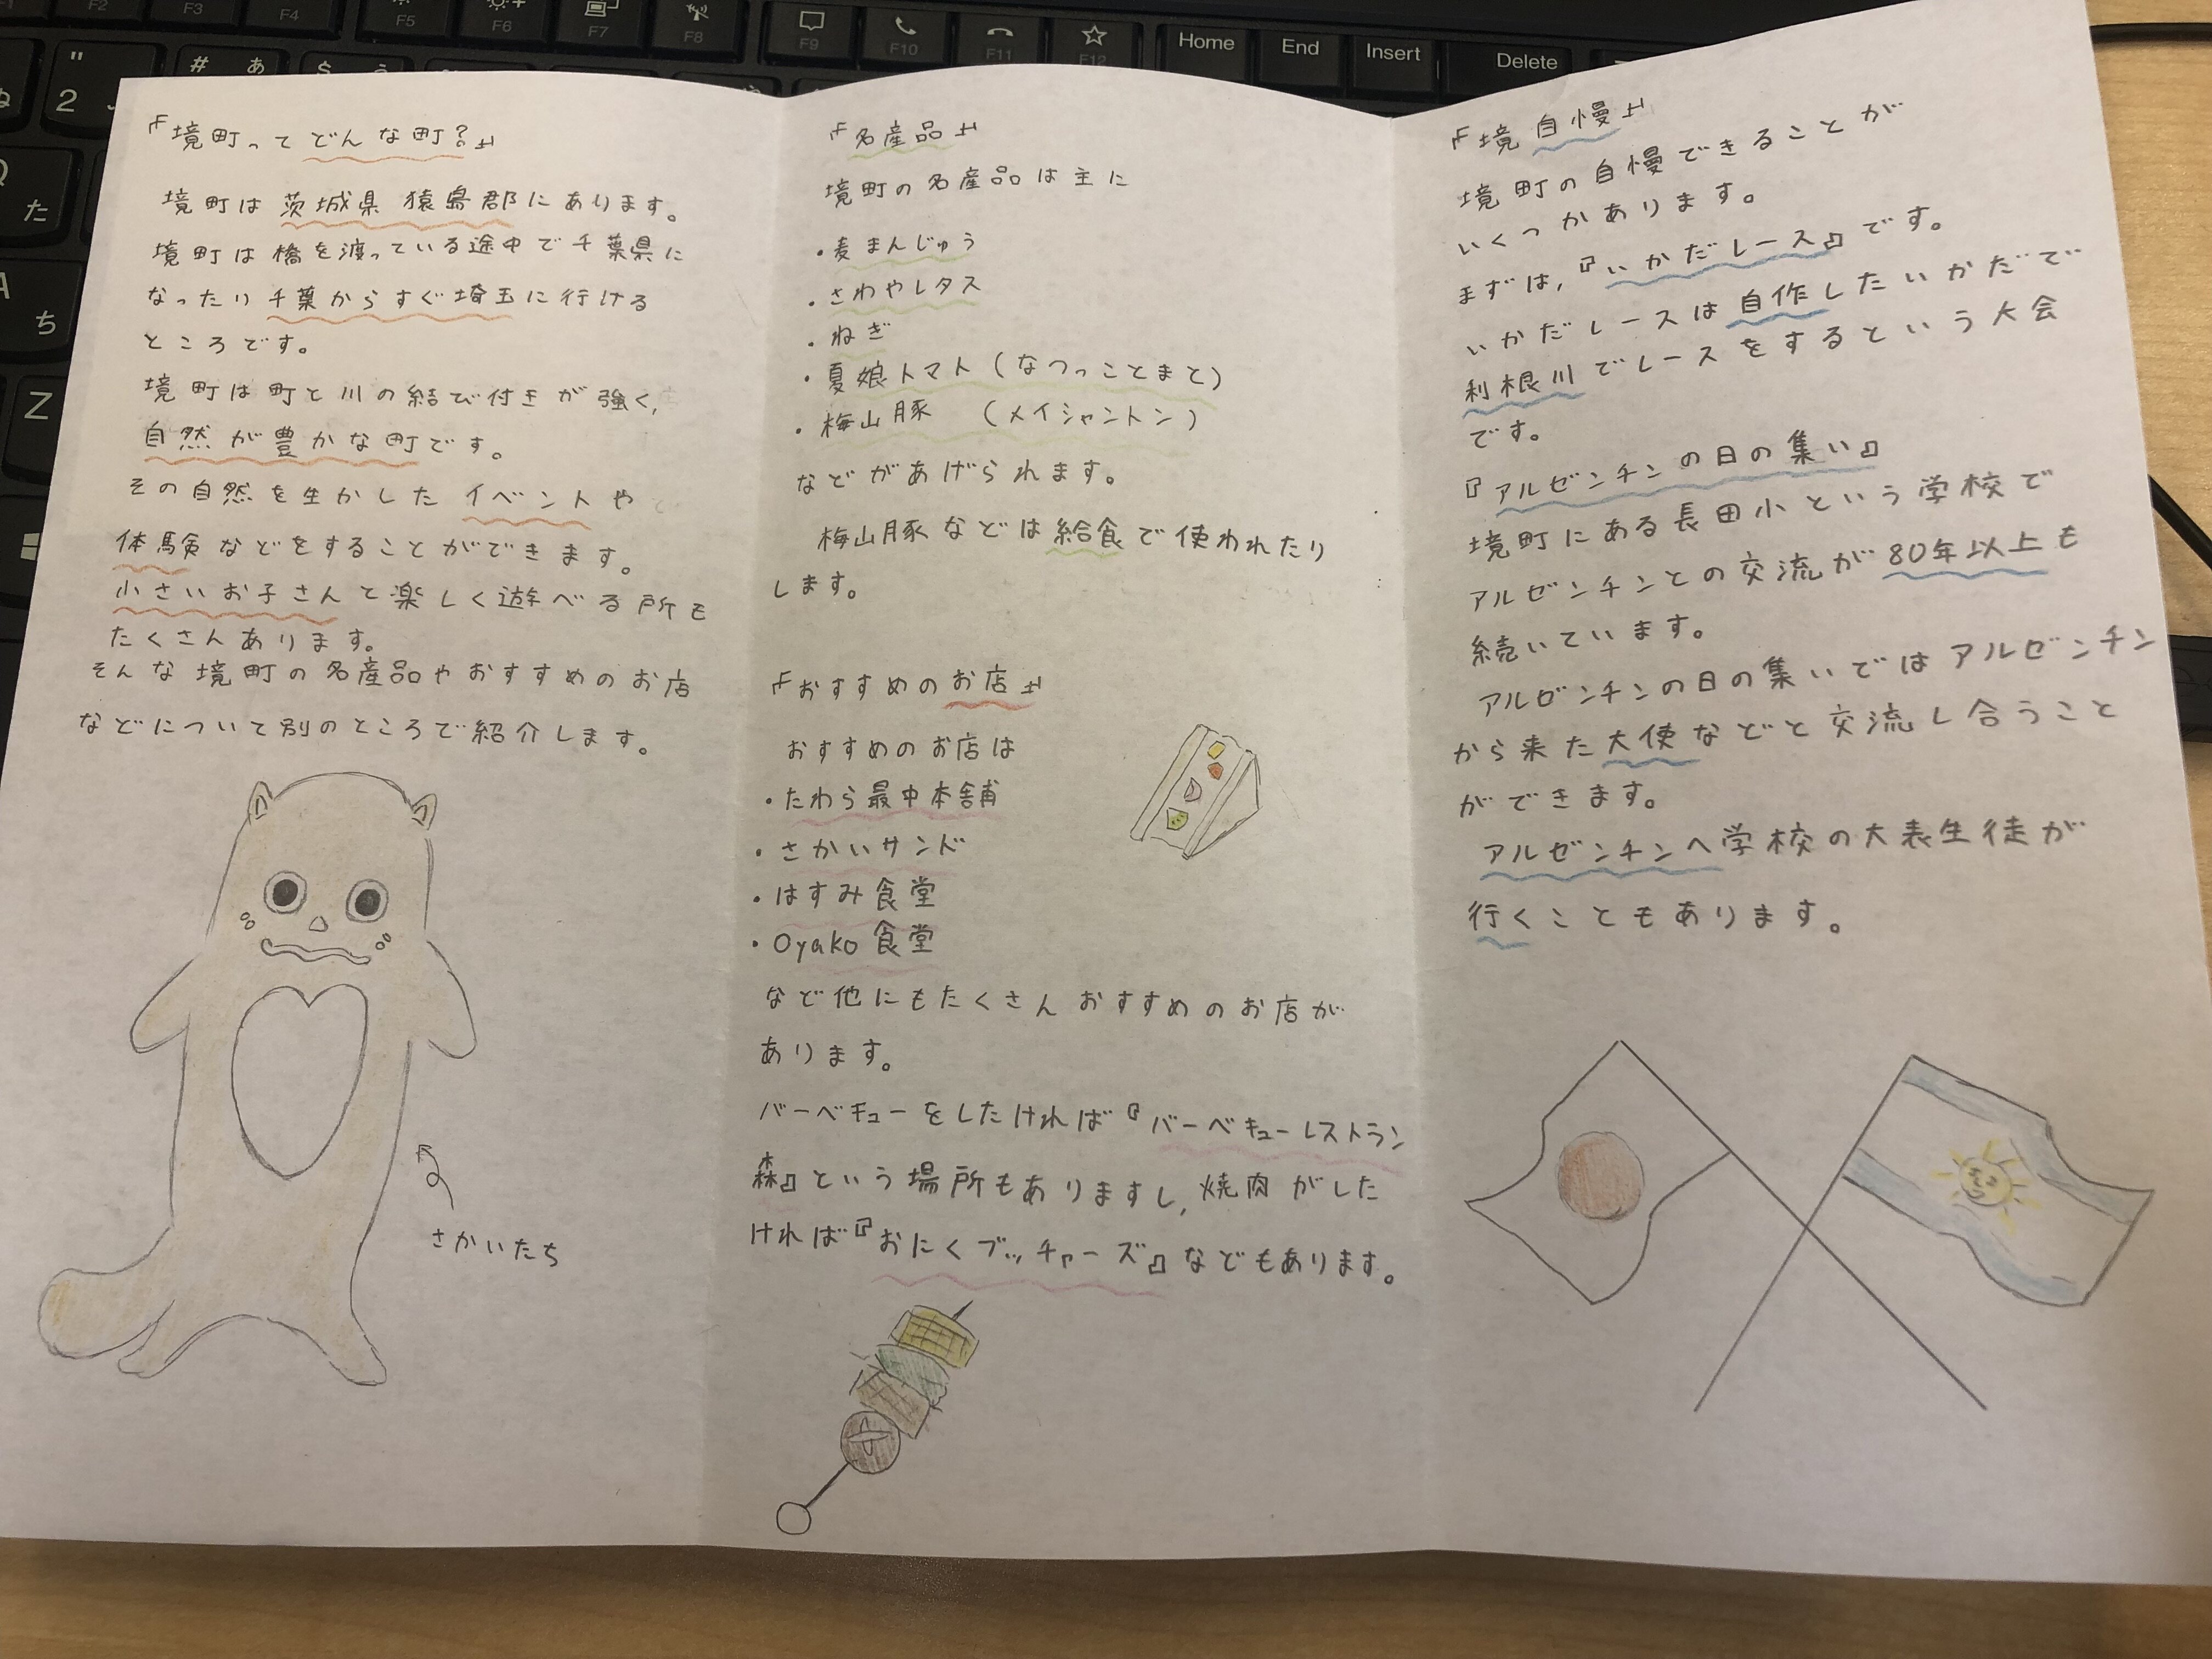 『境町ってどんな町?』
境町は茨城県猿島郡にあります。
境町は橋を渡っている途中で千葉県に
なったり千葉からすぐ埼玉に行ける
ところです。
境町は町と川の結び付きが強く,
自然が豊かな町です。
その自然を生かしたイベントや
体験などをすることができます。
小さいお子さんと楽しく遊べる所も
たくさんあります。
そんな境町の名産品やおすすめのお店
などについて別のところで紹介します。
さかいたち
『名産品』
境町の名産品は主に
・麦まんじゅう
・さわやレタス
・ねぎ
・夏娘トマト(なつっことまと)
・梅山豚 (メイシャントン)
などがあげられます。
梅山豚などは給食で使われたり
します。
『おすすめのお店』
おすすめのお店は
・たわら最中本舗
・さかいサンド
・はすみ食堂
・Oyako食堂
など他にもたくさんおすすめのお店が
あります。
バーベキューをしたければ『バーベキューレストラン
森』という場所もありますし,焼肉がした
ければ『おにくブッチャーズ』などもあります。
『境自慢』
境町の自慢できることが
いくつかあります。
まずは,『いかだレース』です。
いかだレースは自作したいかだで
利根川でレースをするという大会
です。
『アルゼンチンの日の集い』
境町にある長田小という学校で
アルゼンチンとの交流が80年以上も
続いています。
アルゼンチンの日の集いではアルゼンチン
から来た大使などと交流し合うこと
ができます。
アルゼンチンへ学校の大表生徒が
行くこともあります。
F2
F3
F4
F5
F6
F7
F8
F9
F10
F11
F12
Home
End
Insert
Delete
2
#
あ
$
た
A
ち
Z